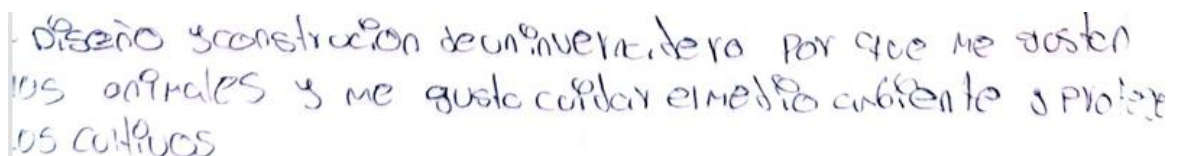 Diseño y construcion de un invernadero por que me gustan
los animales y me gusta cuidar el medio ambiente y proteje
los cultivos